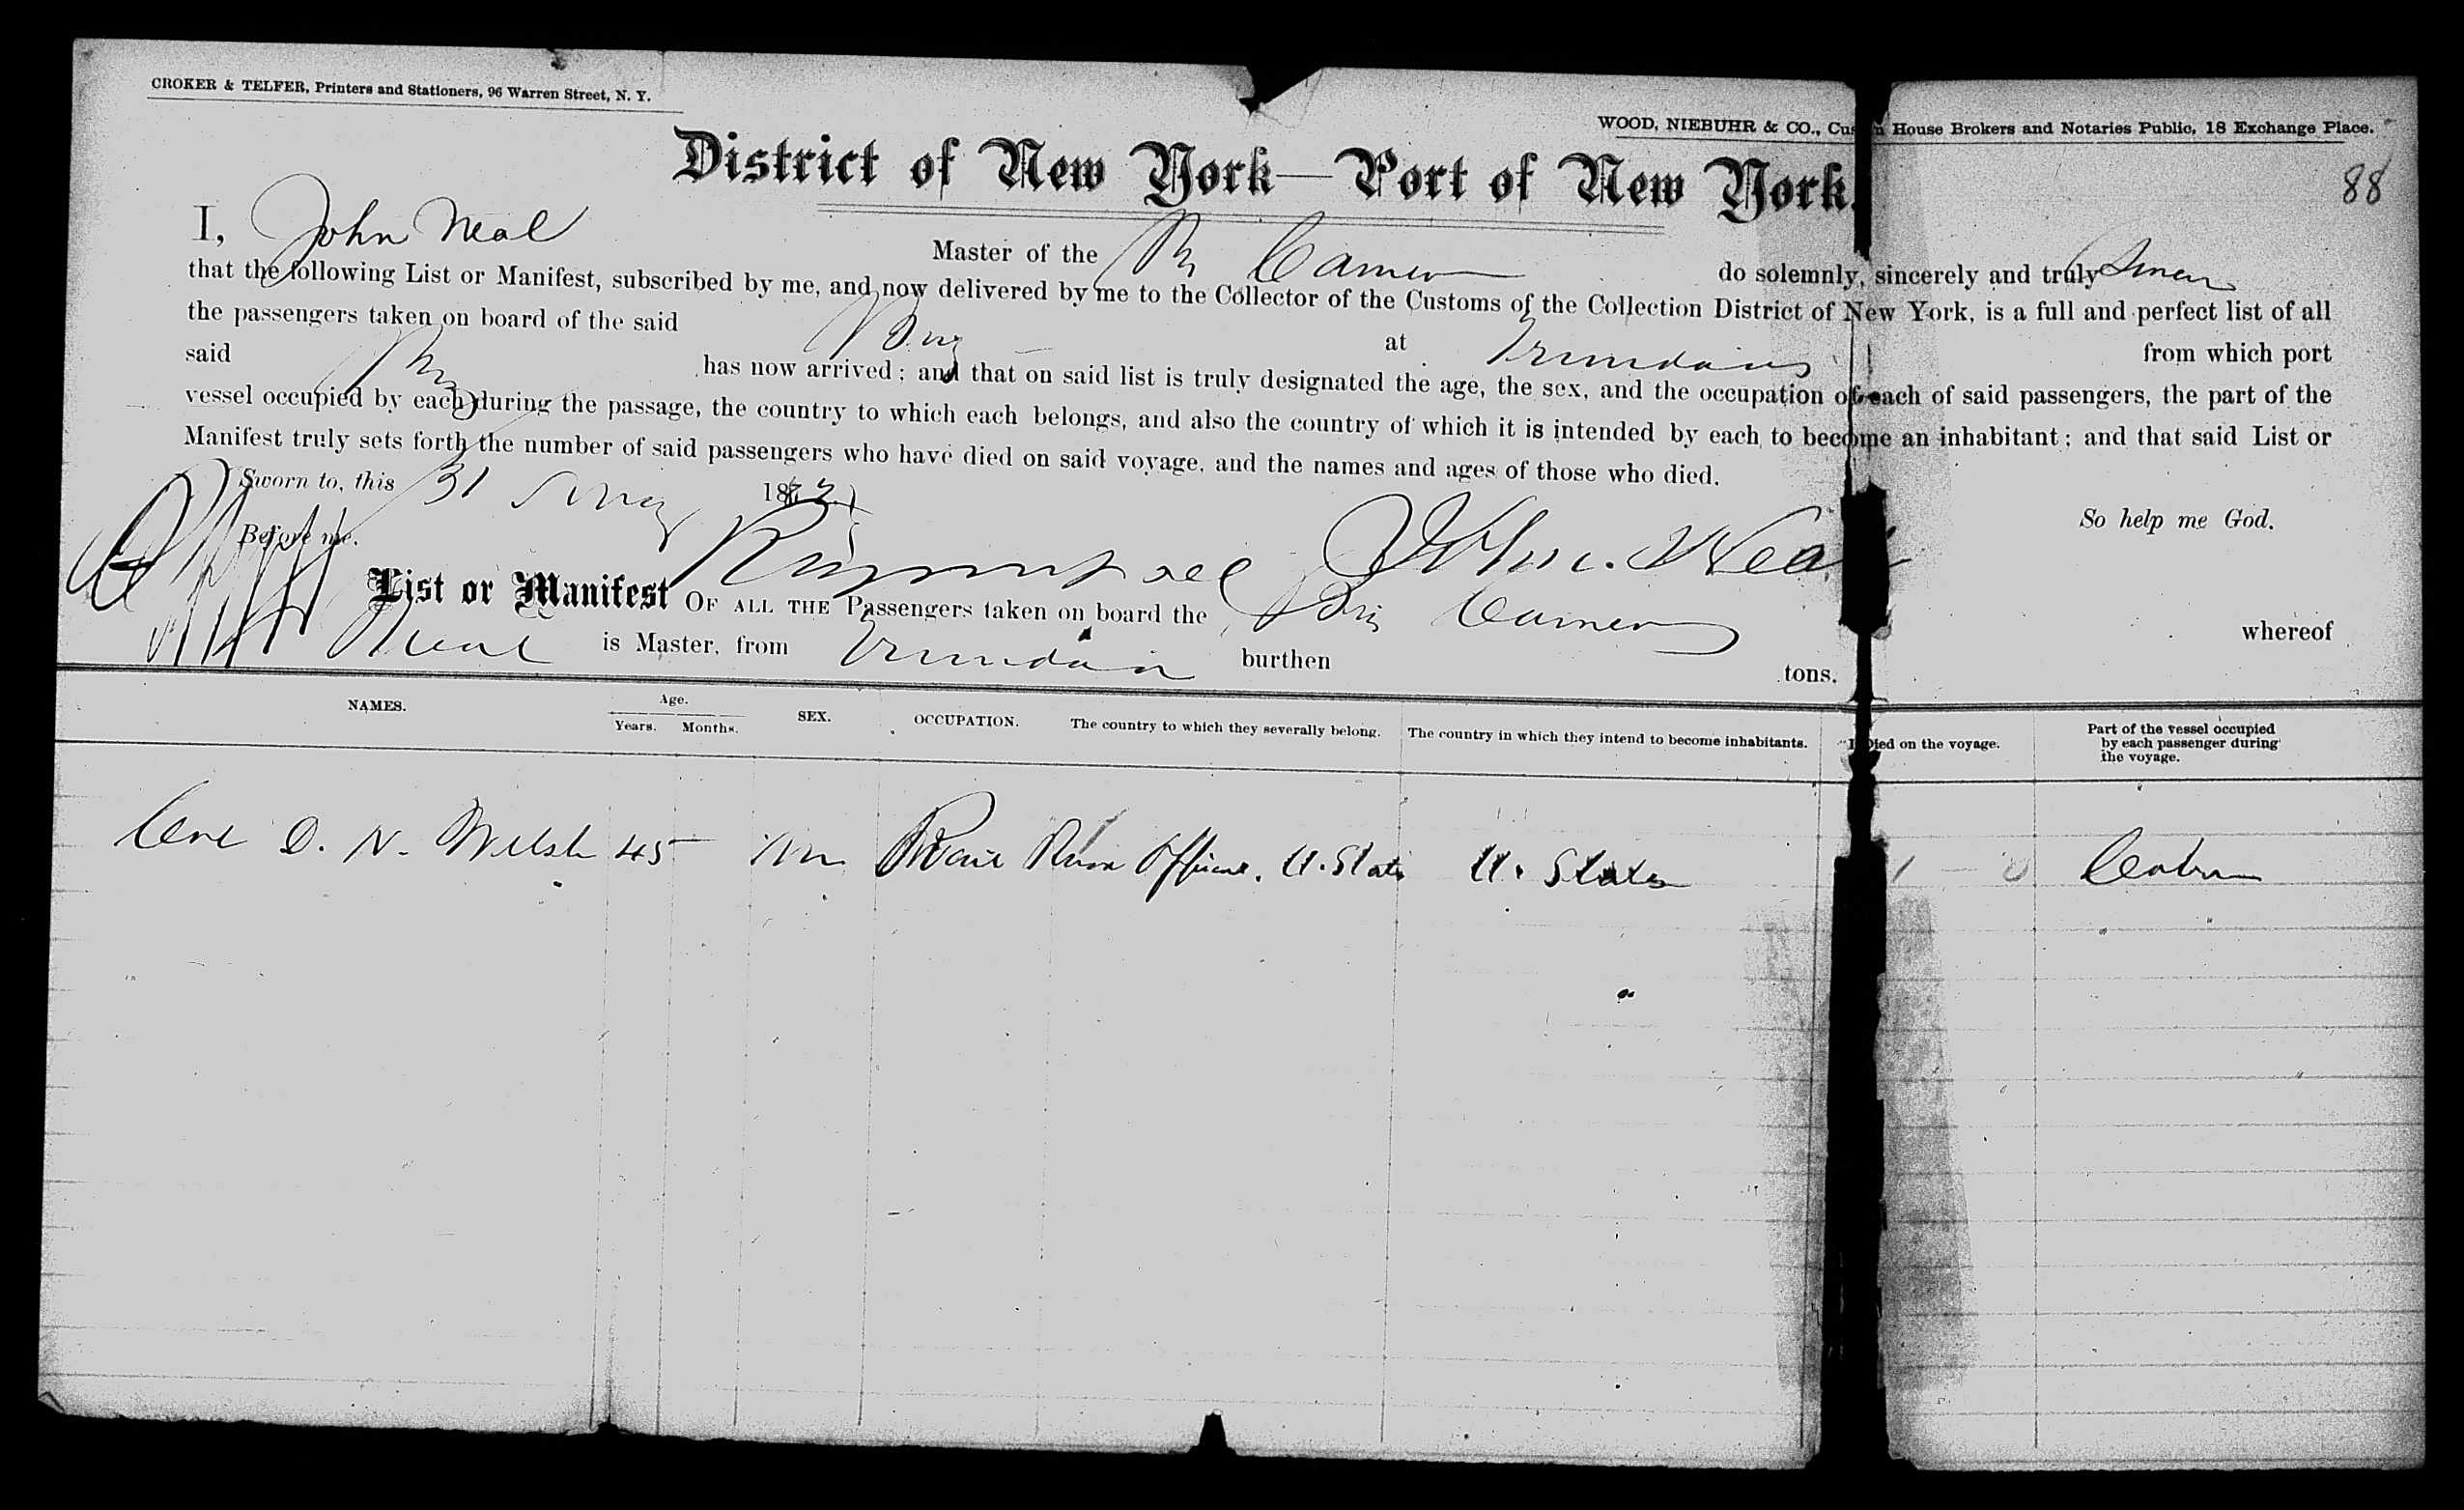 CROKER & TELFER, Printers and Stationers, 96 Warren Street, N. Y.
WOOD, NIEBUHR & CO., Custom House Brokers and Notaries Public, 18 Exchange Place.
District of New York—Port of New York.
88
I, John Neal Master of the do solemnly, sincerely and truly
that the following List or Manifest, subscribed by me, and now delivered by me to the Collector of the Customs of the Collection District of New York, is a full and perfect list of all
the passengers taken on board of the said Brig at from which port
said has now arrived; and that on said list is truly designated the age, the sex, and the occupation of each of said passengers, the part of the
vessel occupied by each during the passage, the country to which each belongs, and also the country of which it is intended by each to become an inhabitant; and that said List or
Manifest truly sets forth the number of said passengers who have died on said voyage, and the names and ages of those who died.
Sworn to, this 31 187
So help me God.
Before me. John Neal
List or Manifest OF ALL THE Passengers taken on board the Brig whereof
Neal is Master, from burthen tons.
NAMES. Age. Years. Months. SEX. OCCUPATION. The country to which they severally belong. The country in which they intend to become inhabitants. Died on the voyage. Part of the vessel occupied by each passenger during the voyage.
D. N. Welsh 45 Officer. U. States U. States Cabin